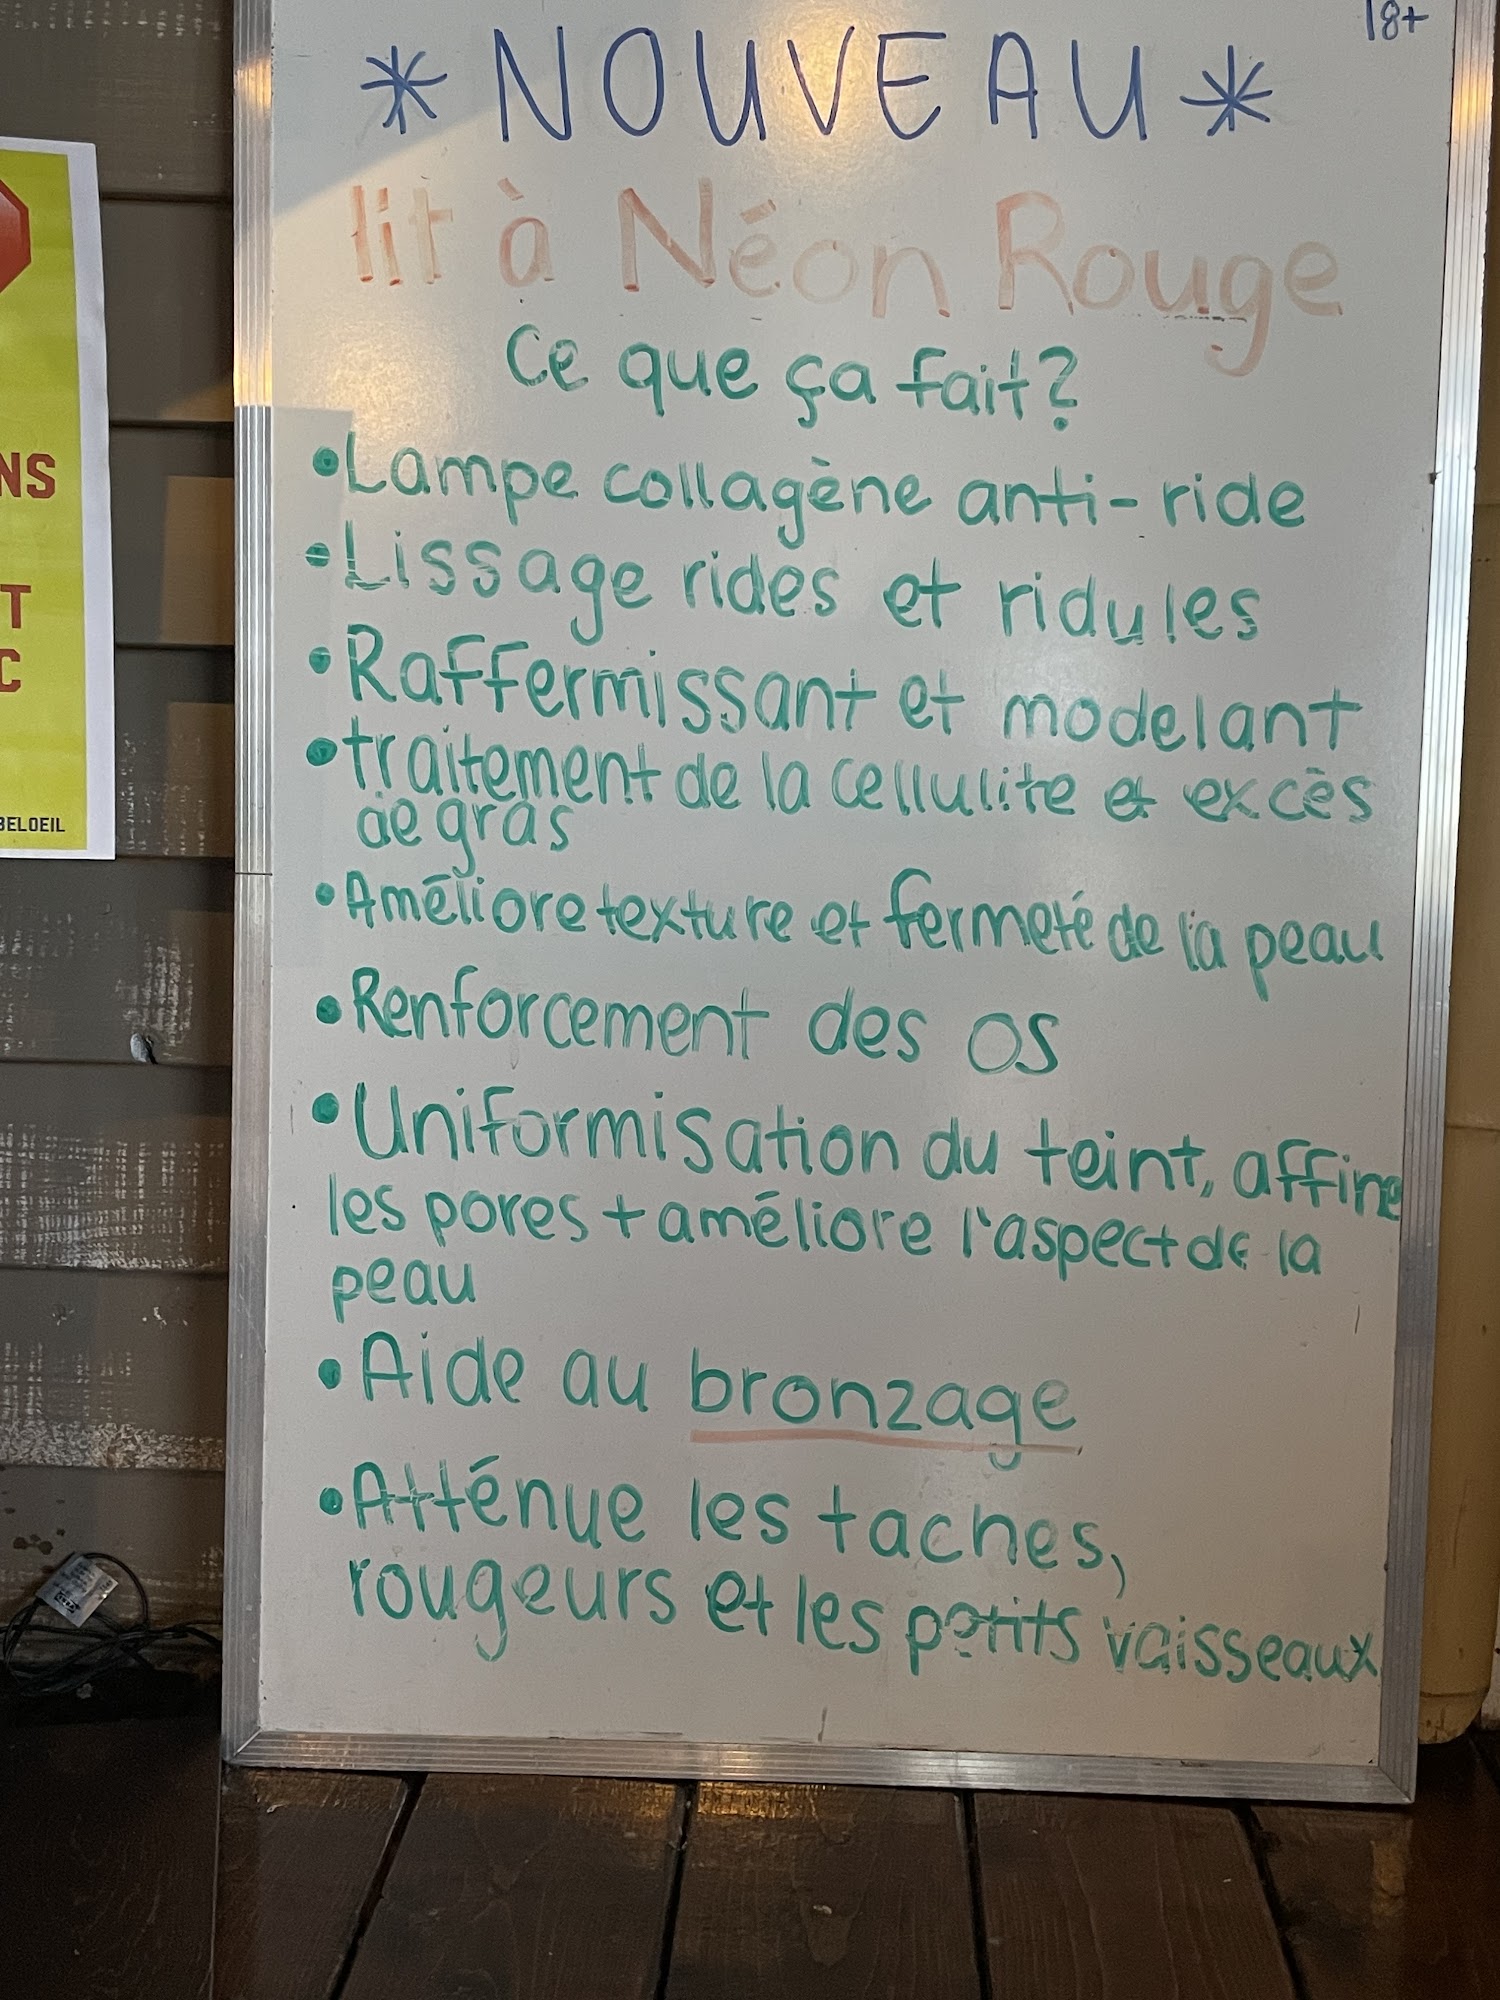 18+
* NOUVEAU *
lit à Néon Rouge
Ce que ça fait?
• Lampe collagène anti-ride
• Lissage rides et ridules
• Raffermissant et modelant
• traitement de la cellulite et excès
de gras
• Améliore texture et fermeté de la peau
• Renforcement des os
• Uniformisation du teint, affine
les pores + améliore l'aspect de la
peau
• Aide au bronzage
• Atténue les taches,
rougeurs et les petits vaisseaux
NS
T
C
BELOEIL